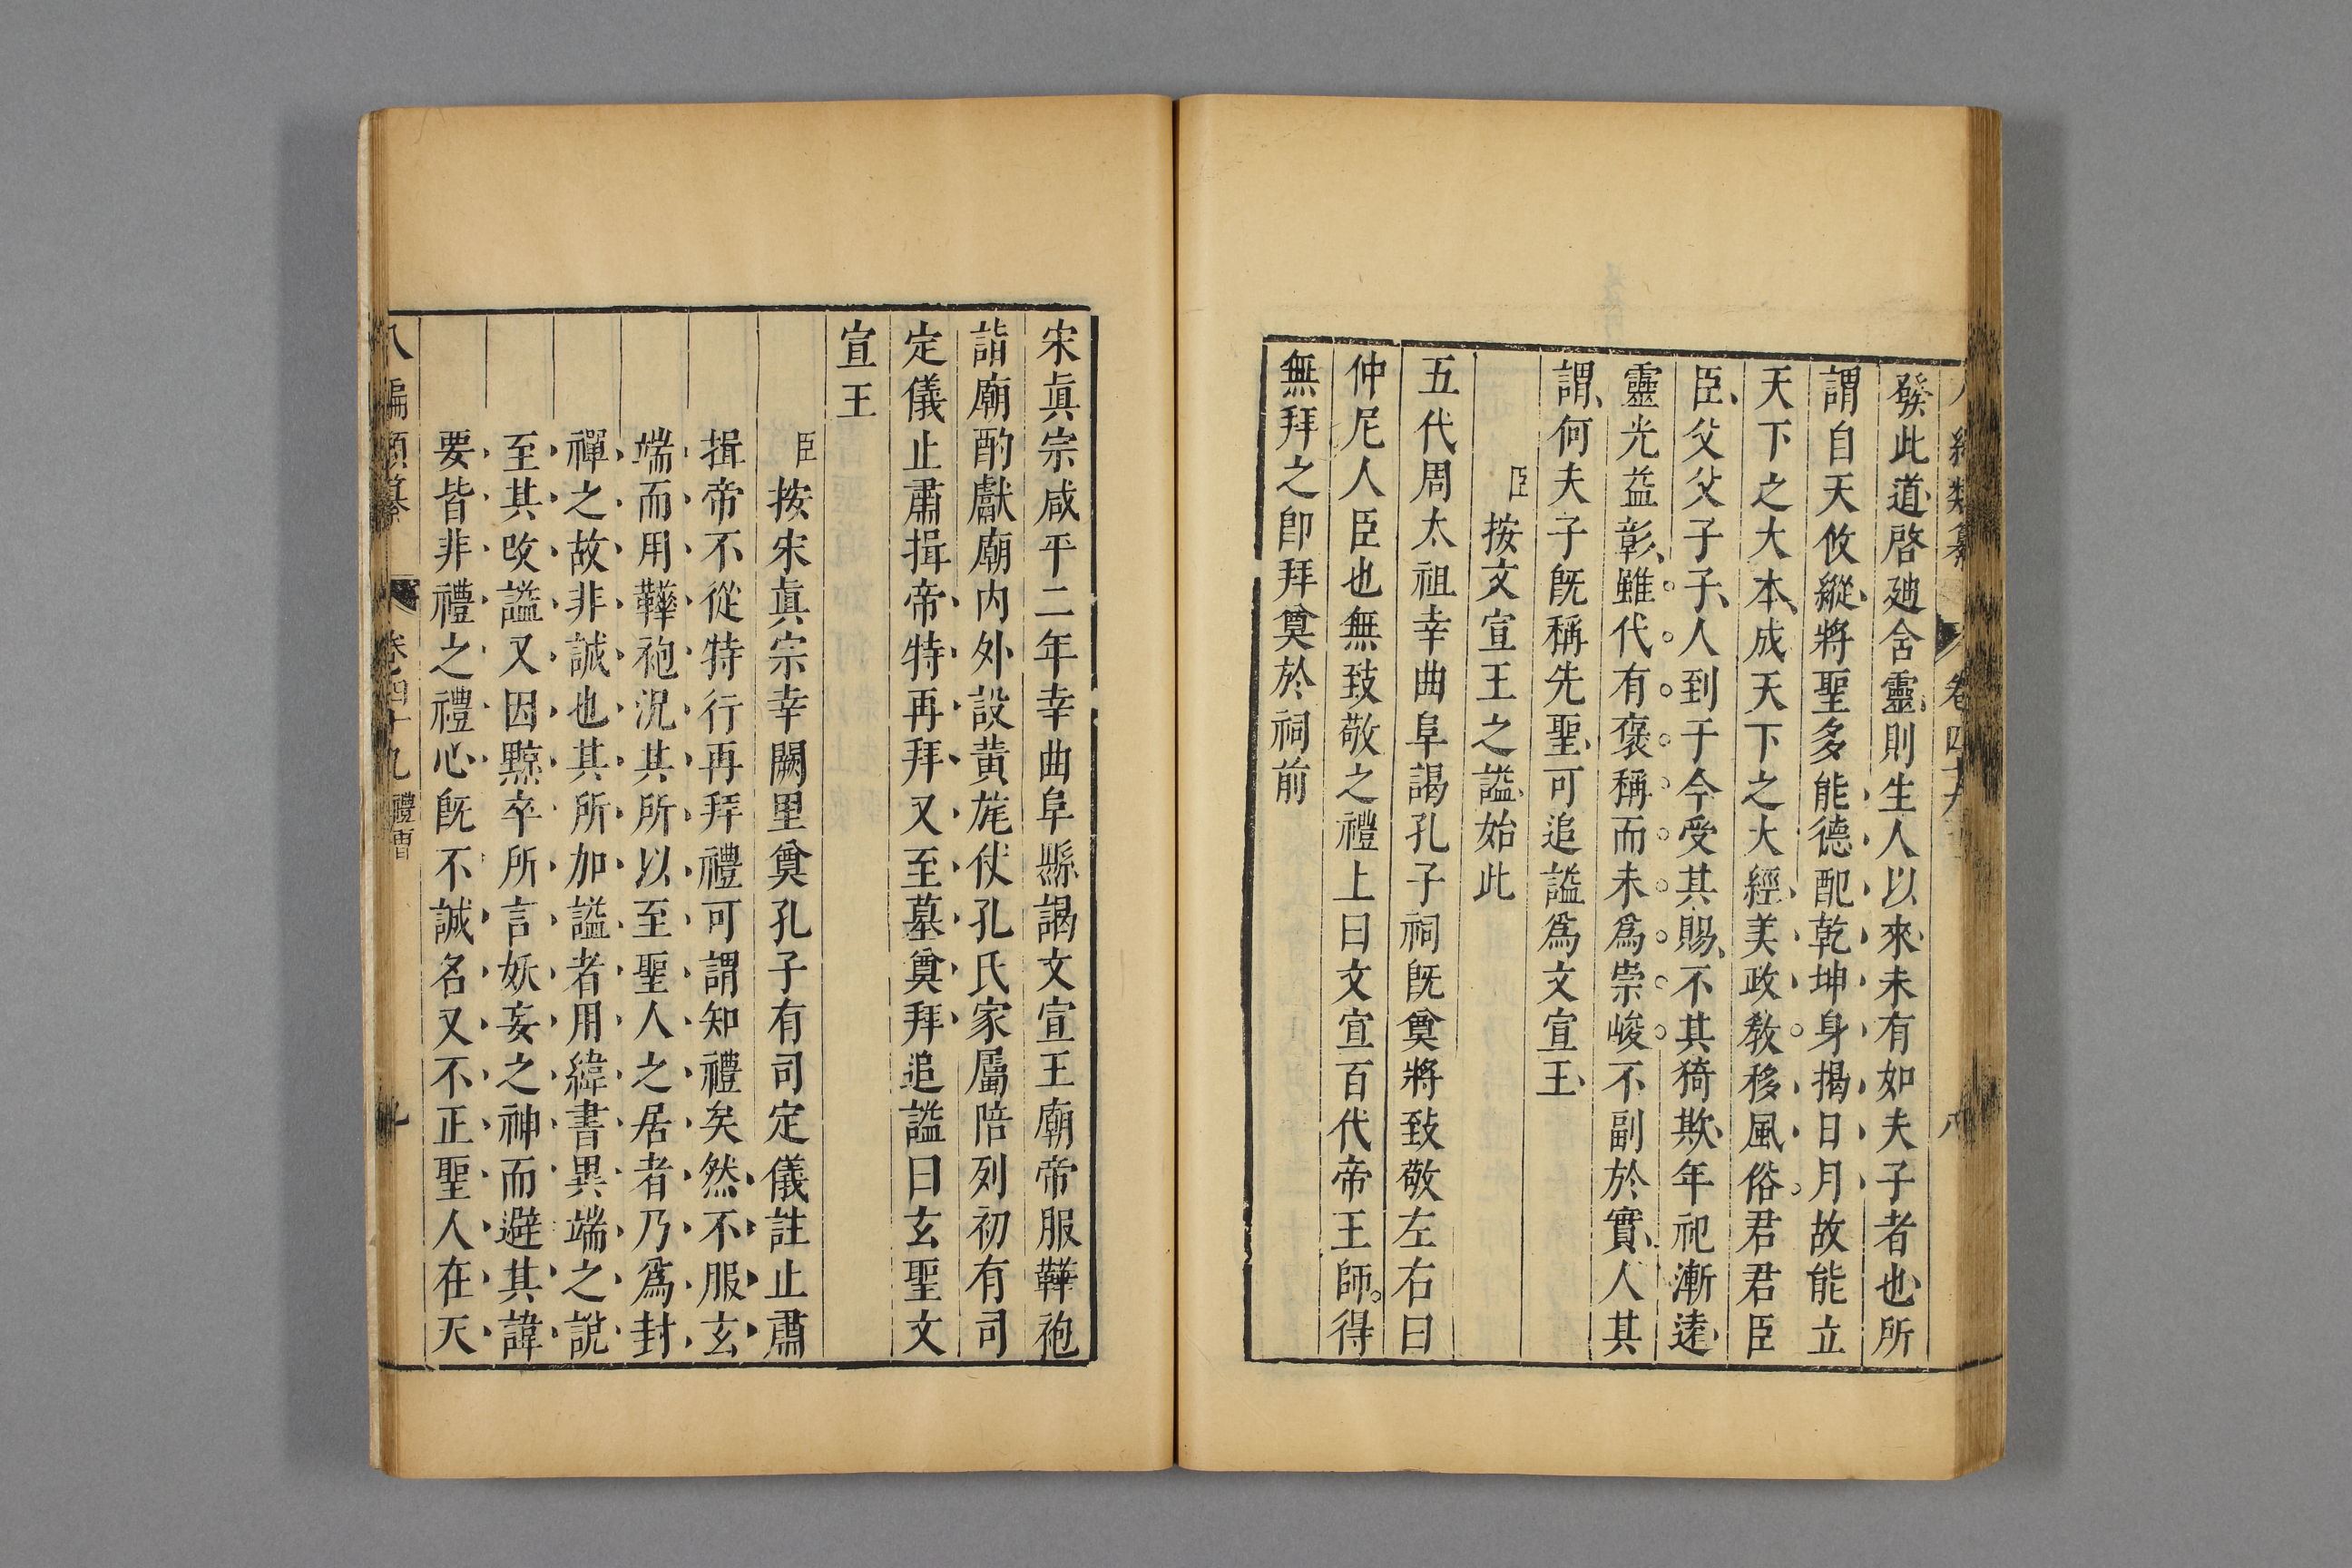 發此道啓廸含靈則生人以來未有如夫子者也所
謂自天攸縱將聖多能德配乾坤身揭日月故能立
天下之大本成天下之大經美政敎移風俗君君臣
臣父父子子人到于今受其賜不其猗歟年祀漸遠
靈光益彰雖代有褒稱而未爲崇峻不副於實人其
謂何夫子旣稱先聖可追謚爲文宣王
臣按文宣王之謚始此
五代周太祖幸曲阜謁孔子祠旣奠將致敬左右曰
仲尼人臣也無致敬之禮上曰文宣百代帝王師得
無拜之卽拜奠於祠前
宋眞宗咸平二年幸曲阜縣謁文宣王廟帝服鞾袍
詣廟酌獻廟內外設黃旄仗孔氏家屬陪列初有司
定儀止肅揖帝特再拜又至墓奠拜追謚曰玄聖文
宣王
臣按宋眞宗幸闕里奠孔子有司定儀註止肅
揖帝不從特行再拜禮可謂知禮矣然不服玄
端而用鞾袍況其所以至聖人之居者乃爲封
禪之故非誠也其所加謚者用緯書異端之說
至其改謚又因黥卒所言妖妄之神而避其諱
要皆非禮之禮心旣不誠名又不正聖人在天
八編類纂 卷之四十九 禮曹 九